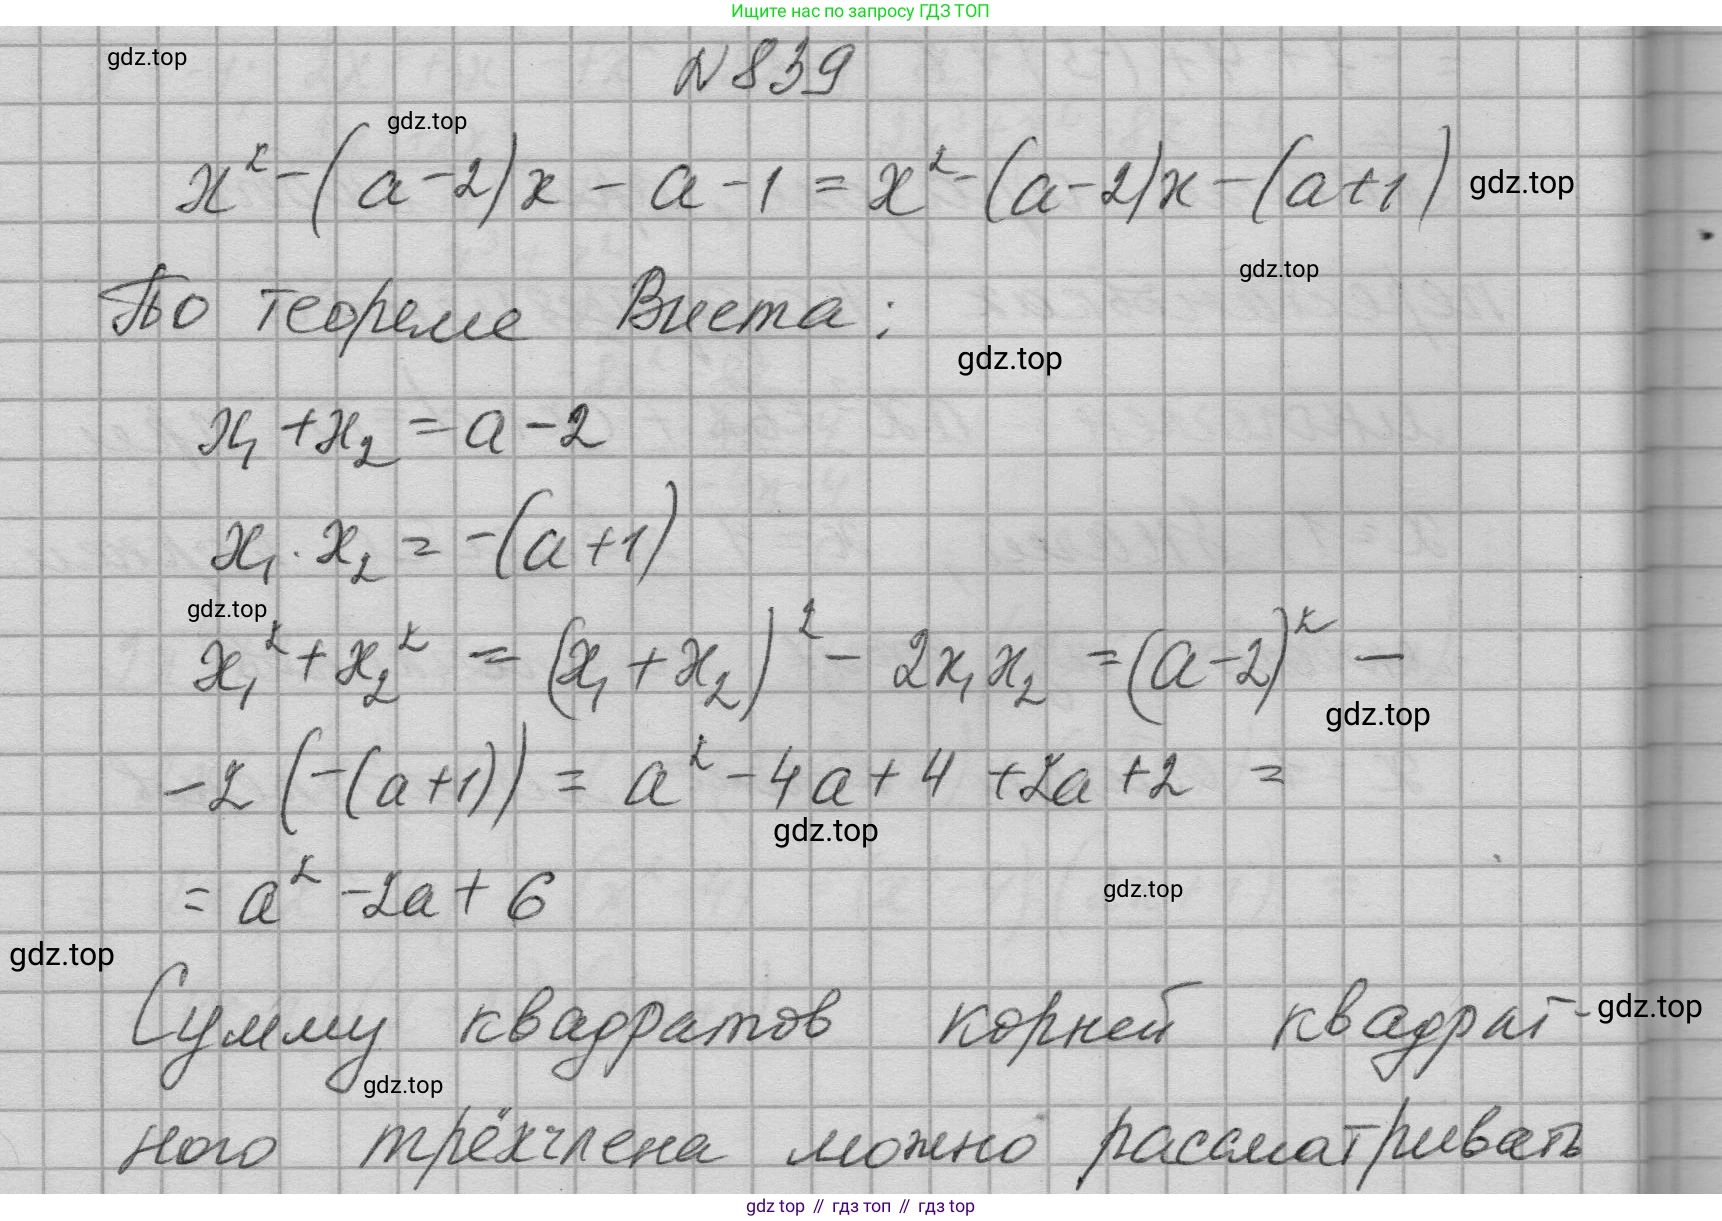 Ищите нас по запросу ГДЗ ТОП
gdz.top
№839
gdz.top
x² - (a - 2)x - a - 1 = x² - (a - 2)x - (a + 1)
gdz.top
gdz.top
По теореме Виета:
gdz.top
x₁ + x₂ = a - 2
x₁ · x₂ = -(a + 1)
gdz.top
x₁² + x₂² = (x₁ + x₂)² - 2x₁x₂ = (a - 2)² -
gdz.top
- 2(-(a + 1)) = a² - 4a + 4 + 2a + 2 =
gdz.top
= a² - 2a + 6
gdz.top
gdz.top
Сумму квадратов корней квадрат-
gdz.top
gdz.top
ного трёхчлена можно рассматривать
gdz top // гдз топ // gdz top